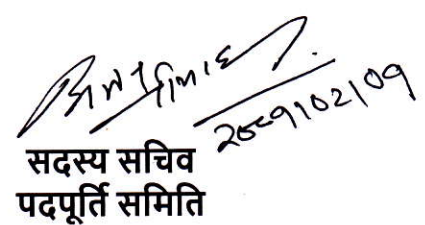 २०८१।०२।०१
सदस्य सचिव
पदपूर्ति समिति